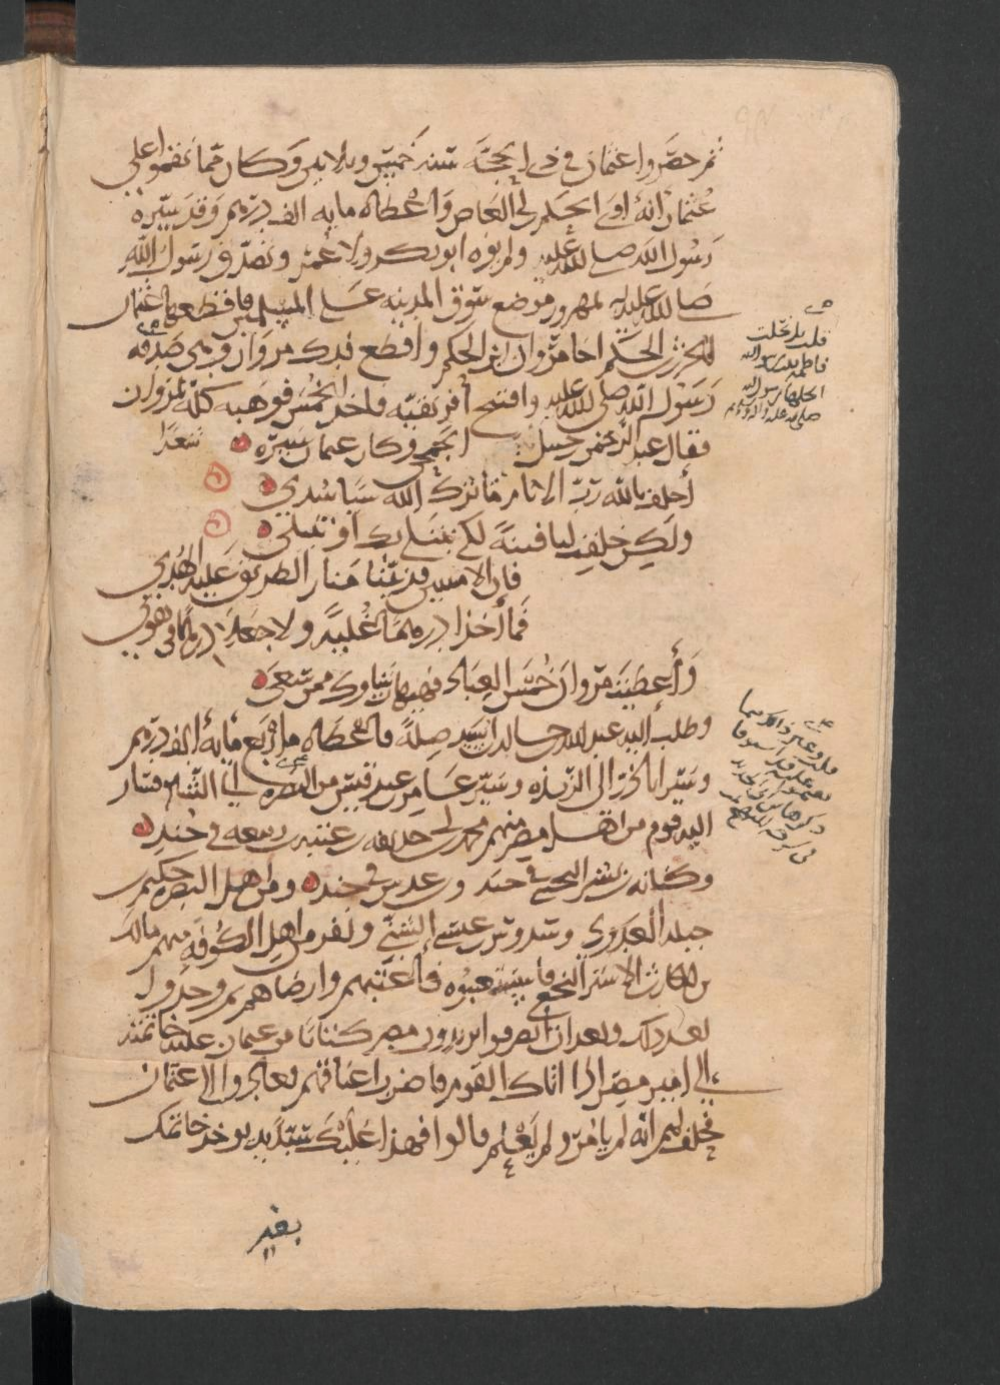 ثم حصروا عثمان في ذي الحجة سنة خمس وثلاثين وكان مما نقموا على
عثمان أنه اوى الحكم بن ابي العاص واعطاه مايه الف درهم وقد سيره
رسول الله صلى الله عليه ولم يؤه ابو بكر ولا عمر وتصدق رسول الله
صلى الله عليه بمهزور موضع سوق المدينه على المسلمين فاقطعها عثمان
للحرث بن الحكم اخا مروان ابن الحكم وأقطع فدك مروان وهي صدقه
رسول الله صلى الله عليه وافتتح أفريقيه فاخذ الخمس فوهبه كله لمروان
فقال عبد الرحمن بن حسل الجمحي وكان عثمان سيره
أحلف بالله رب الانام ما ترك الله شيا سدي
ولكن خلقت لنا فتنة لكي نبتلى بك او تبتلى
فان الامينين قد بينا منار الطريق عليه الهدى
فما أخذا درهما غيلة ولا جعلا درهما في هوى
وأعطيت مروان خمس العباد فهيهات شاوك ممن سعى
وطلب اليه عبد الله بن خالد بن اسيد صلة فاعطاه اربع مايه الف درهم
وسير ابا ذر الى الربذه وسير عامر بن عبد قيس من البصره الى الشام فسار
اليه قوم من اهل مصر منهم محمد بن ابي حذيفه بن عتبه بن ربيعه في جند
وكنانه بن بشر التجيبي في جند وبن عديس في جند ومن اهل البصره حكيم بن
جبله العبدي وسدوس بن عبس الشني ونفر من اهل الكوفه منهم مالك
بن الحارث الاشتر النخعي فاستعتبوه فأعتبهم وارضاهم ثم وجدوا
بعد ذلك وبعد ان انصرفوا يريدون مصر كتابا من عثمان عليه خاتمه
الى امير مصر اذا اتاك القوم فاضرب اعناقهم فعادوا الى عثمان
فحلف لهم انه لم يامر ولم يعلم قالوا فهذا عليك شديد يوخذ خاتمك
بغير
قلت بل نحلت
فاطمه بنت رسول الله